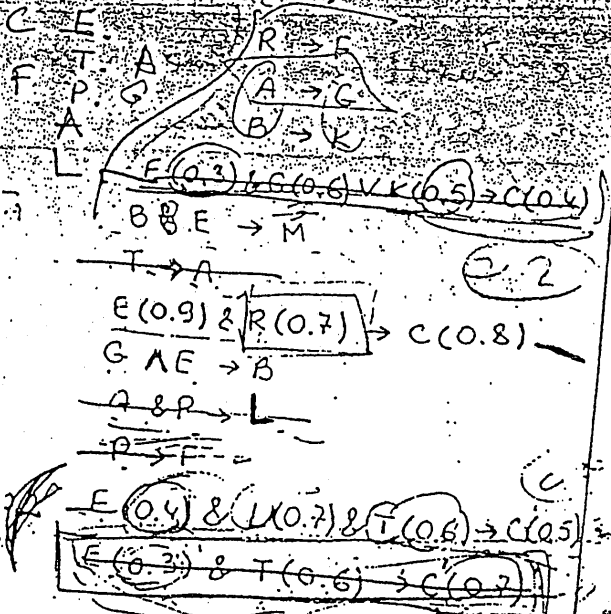 C E.
R → F
T. A
A → G
F P. G
B → K
A
L
F(0.3) & G(0.6) V K(0.5) → C(0.4)
B & E → M
T → A
2
E(0.9) & R(0.7) → C(0.8)
G ∧ E → B
A & P → L
P → F
E (0.4) & L(0.7) & T(0.6) → C(0.5)
E(0.3) & T(0.6) → C(0.7)